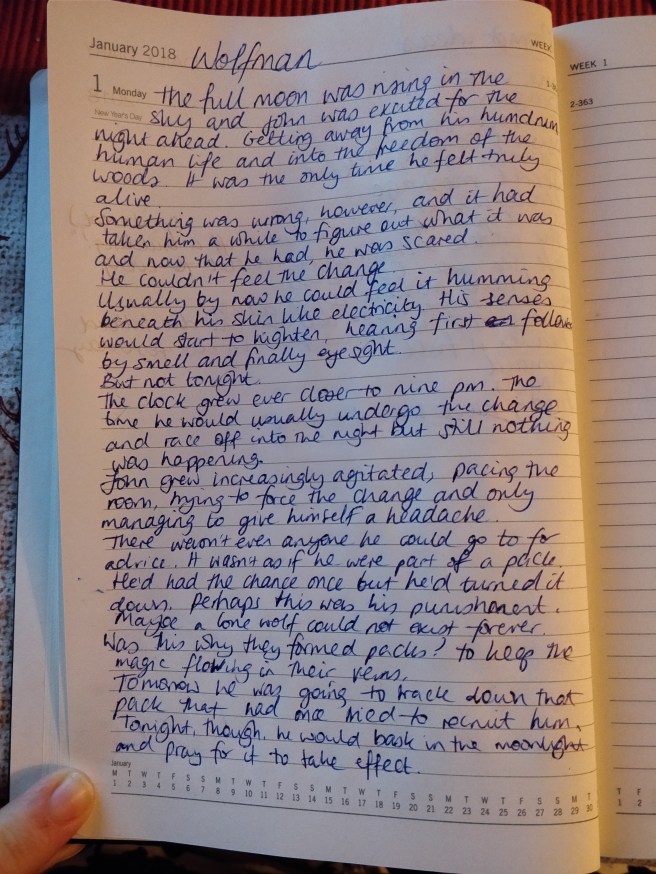 January 2018 Wolfman WEEK
1 Monday The full moon was rising in the
New Year's Day sky and John was excited for the
night ahead. Getting away from his humdrum
human life and into the freedom of the
woods. It was the only time he felt truly
alive.
Something was wrong, however, and it had
taken him a while to figure out what it was
and now that he had, he was scared.
He couldn't feel the change.
Usually by now he could feel it humming
beneath his skin like electricity. His senses
would start to highten, hearing first followed
by smell and finally eyesight.
But not tonight.
The clock grew ever closer to nine pm. The
time he would usually undergo the change
and race off into the night but still nothing
was happening.
John grew increasingly agitated, pacing the
room, trying to force the change and only
managing to give himself a headache.
There weren't even anyone he could go to for
advice. It wasn't as if he were part of a pack.
He'd had the chance once but he'd turned it
down. Perhaps this was his punishment.
Maybe a lone wolf could not exist forever.
Was this why they formed packs? To keep the
magic flowing in their veins.
Tomorrow he was going to track down that
pack that had once tried to recruit him.
Tonight, though, he would bask in the moonlight
and pray for it to take effect.
January
M T W T F S S M T W T F S S M T W T F S S M T W T F S S M T
1 2 3 4 5 6 7 8 9 10 11 12 13 14 15 16 17 18 19 20 21 22 23 24 25 26 27 28 29 30
WEEK 1
2-363
T F
1 2